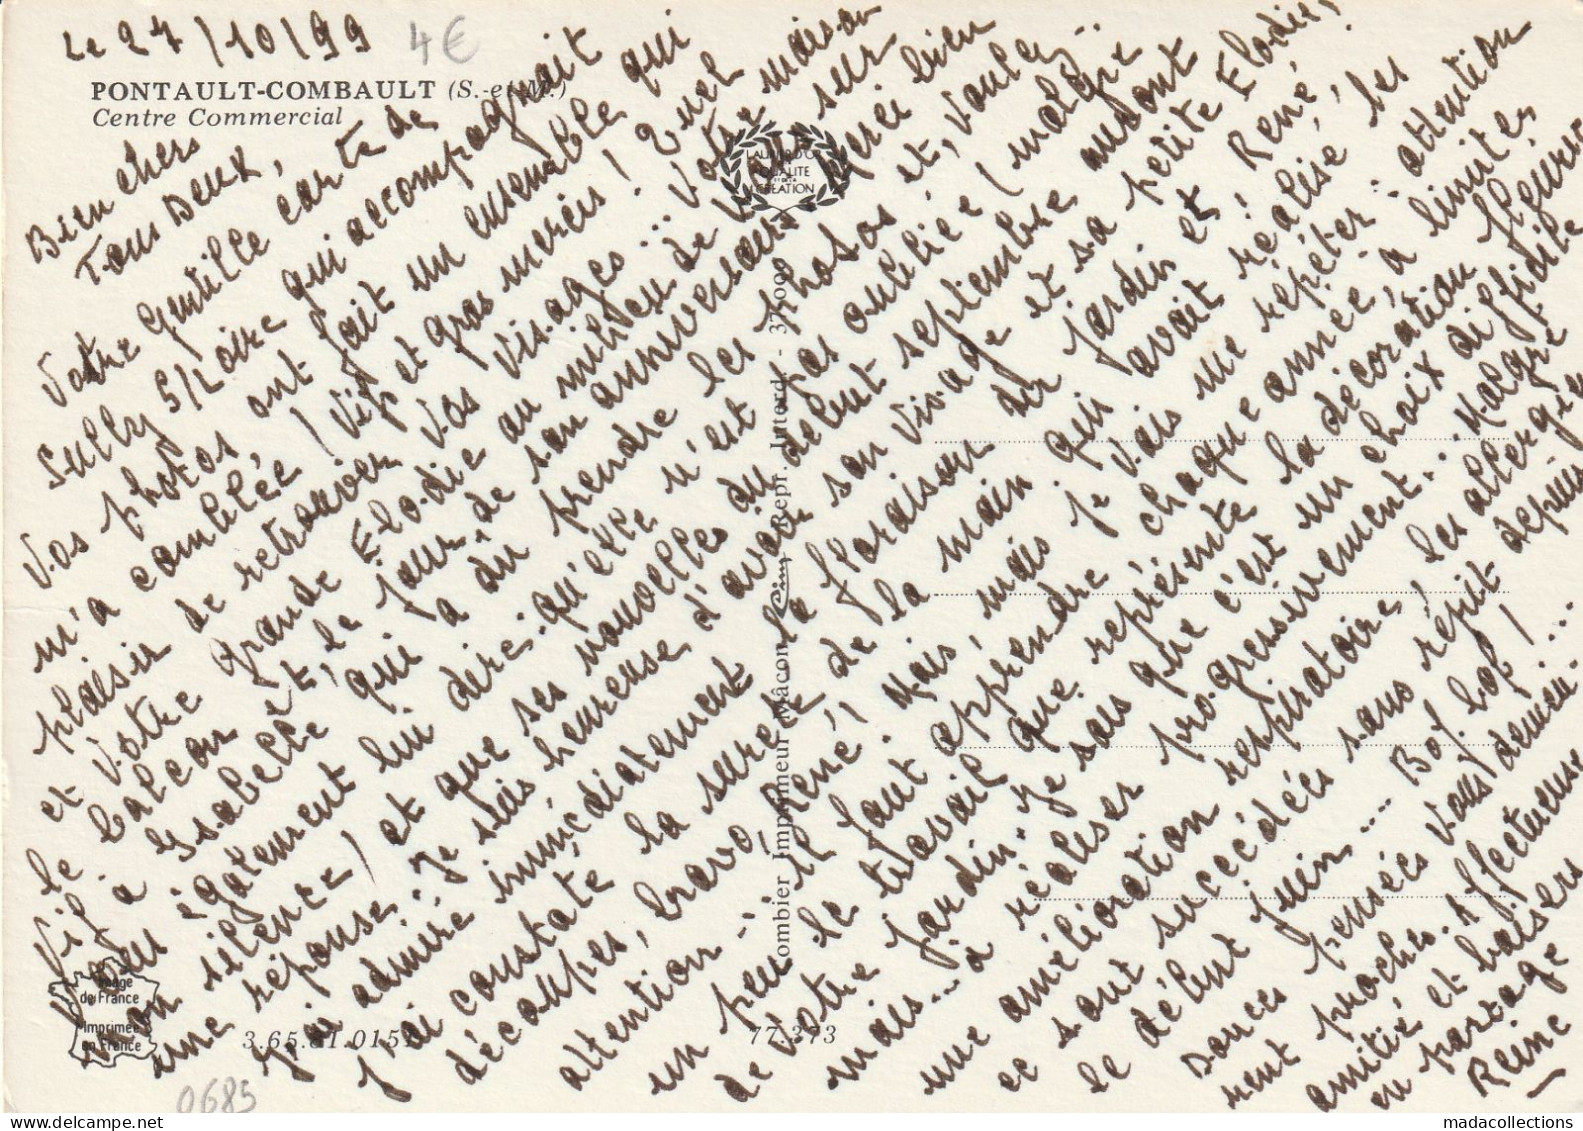 Le 27/10/99
4€
PONTAULT-COMBAULT (S.-et-M.)
Centre Commercial
Bien chers
Tous Deux,
Votre gentille carte de
Sully S/Loire qui accompagnait
Vos photos ont fait un ensemble qui
m'a comblée ! Vifs et gros mercis ! Quel
plaisir de retrouver Vos Visages... Votre maison
et Votre grande Elodie au milieu de Vous sur
le balcon et le jour de son anniversaire. Merci bien
Vif à Isabelle, qui a dû prendre les photos et, Voulez..
Vous également lui dire qu'elle n'est pas oubliée (malgré
mon silence) et que ses nouvelles du début septembre auront
une réponse. Je suis heureuse d'avoir son Visage et sa petite Elodie !
J'ai admiré immédiatement la floraison du jardin et, René,
j'ai constaté la sureté de la main qui avait réalisé les
découpes, bravo, René ! Mais, mais je Vais me répéter : attention
attention - il faut apprendre chaque année, à limiter
un peu le travail que représente la décoration fleurie
de Votre jardin. Je sais que c'est un choix difficile
mais... à réaliser progressivement... Malgré
une amélioration respiratoire, les allergies
se sont succédées sans répit depuis
le début juin... Bof, bof !
Douces pensées Vous demeu...
rent proches. Affectueuse
amitié et baisers
en partage
Reine
LAURIER D'OR
QUALITÉ
ET DE LA
CRÉATION
Combier Imprimeur Mâcon Cim Repr. Interd. - 37.000
Image
de France
Imprimée
en France
3.65.81.0151
77.373
0685
madacollections